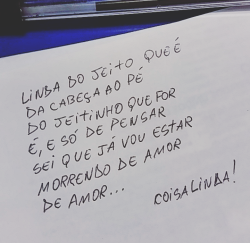 LINDA DO JEITO QUE É
DA CABEÇA AO PÉ
DO JEITINHO QUE FOR
É, E SÓ DE PENSAR
SEI QUE JÁ VOU ESTAR
MORRENDO DE AMOR
DE AMOR...
COISA LINDA!